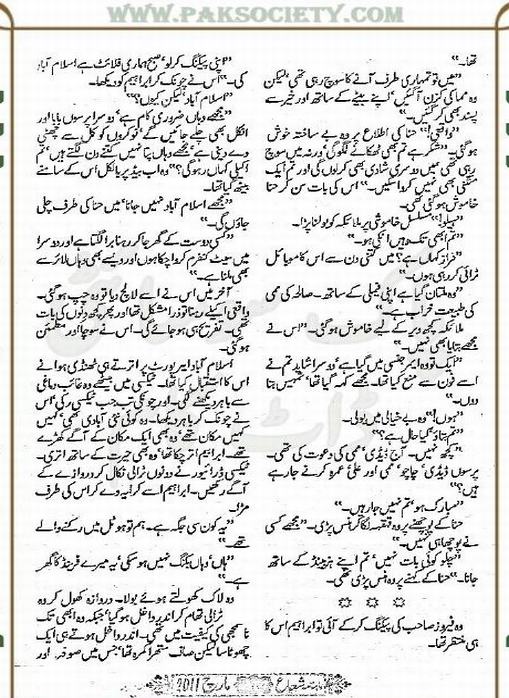 WWW.PAKSOCIETY.COM
تھا۔"
"میں تو تمہاری طرف آنے کا سوچ رہی تھی' لیکن
وہ مما کی کزن آ گئیں' اپنے بیٹے کے ساتھ اور خیر سے
پسند بھی کر گئیں۔"
"واقعی!" حنا کی اطلاع پر وہ بے ساختہ خوش
ہو گئی۔ "شکر ہے تم بھی ٹھکانے لگو گی' ورنہ میں سوچ
رہی تھی میں دوسری شادی بھی کر لوں گی اور تم ایک
منگنی بھی نہیں کروا سکیں۔" اس کی بات سن کر حنا
خاموش ہو گئی تھی۔
"ہیلو!" مسلسل خاموشی پر ملائکہ کو بولنا پڑا۔
"تم ابھی تک وہیں اٹکی ہو۔"
"فراز کہاں ہے؟ میں کتنی دن سے اس کا موبائل
ٹرائی کر رہی ہوں۔"
"وہ ملتان گیا ہے اپنی فیملی کے ساتھ۔ صالحہ کی ممی
کی طبیعت خراب ہے۔"
ملائکہ کچھ دیر کے لیے خاموش ہو گئی۔ "اس نے
مجھے بتایا بھی نہیں۔"
"ایک تو وہ ایمرجنسی میں گیا ہے' دوسرا شاید تم نے
اسے فون سے منع کیا تھا۔ مجھے کہہ گیا تھا' تمہیں بتا
دوں۔"
"ہوں!" وہ بے خیالی میں بولی۔
"تم بتاؤ کیا حال ہے؟"
"کچھ نہیں۔ آج ڈیڈی' ممی کی دعوت کی تھی۔
پرسوں ڈیڈی' چاچو' ممی اور علی عمرہ کرنے جا رہے
ہیں؟"
"مبارک ہو' تم نہیں جا رہیں۔"
حنا کے پوچھنے پر وہ قہقہہ لگا کر ہنس پڑی۔ "مجھے کسی
نے پوچھا ہی نہیں۔"
"چلو کوئی بات نہیں' تم اپنے ہزبینڈ کے ساتھ
جانا۔" حنا کے کہنے پر وہ ہنس پڑی تھی۔
☼ ☼ ☼
وہ فیروز صاحب کی پیکنگ کر کے آئی تو ابراہیم اس کا
ہی منتظر تھا۔
"اپنی پیکنگ کر لو' صبح ہماری فلائٹ ہے اسلام آباد
کی۔" اس نے چونک کر ابراہیم کو دیکھا۔
"اسلام آباد' لیکن کیوں؟"
"مجھے وہاں ضروری کام ہے' دوسرا پرسوں بابا اور
انکل بھی چلے جائیں گے' نوکروں کو کل سے چھٹی
دے دینی ہے' مجھے وہاں پتا نہیں کتنے دن لگتے ہیں' تم
اکیلی کہاں رہو گی؟" وہ اب بیڈ پر بالکل اس کے سامنے
بیٹھ گیا تھا۔
"مجھے اسلام آباد نہیں جانا' میں حنا کی طرف چلی
جاؤں گی۔"
"کسی دوست کے گھر جا کر رہنا برا لگتا ہے اور دوسرا
میں سیٹ کنفرم کروا چکا ہوں اور ویسے بھی وہاں لائر سے
بھی ملنا ہے۔"
آخر میں اس نے اسے لالچ دیا تو وہ چپ ہو گئی۔
واقعی اکیلے رہنا تو ذرا مشکل تھا اور پھر کچھ دنوں کی بات
تھی۔ تفریح ہی ہو جائے گی۔ اس نے سوچا اور مطمئن
ہو گئی۔
اسلام آباد ایئر پورٹ پر اترتے ہی ٹھنڈی ہوائے
اس کا استقبال کیا تھا۔ ٹیکسی میں بیٹھے وہ غائب دماغی
سے باہر دیکھنے لگی۔ اور چونکی تب جب ٹیکسی رکی' اس
نے چونک کر باہر دیکھا۔ وہ کوئی نئی آبادی تھی' کہیں
کہیں مکان تھے' وہ بھی ایک مکان کے آگے کھڑے
تھے۔ ابراہیم اتر چکا تھا' وہ بھی حیرت کے ساتھ اتری۔
ٹیکسی ڈرائیور نے دونوں ٹرالی نکال کر دروازے کے
آگے رکھیں۔ ابراہیم اسے کرایہ دے کر اس کی طرف
مڑا۔
"یہ کون سی جگہ ہے۔ ہم تو ہوٹل میں رکنے والے
تھے۔"
"ہاں' وہاں بکنگ نہیں ہو سکی' یہ میرے فرینڈ کا گھر
ہے۔"
وہ لاک کھولتے ہوئے بولا۔ دروازہ کھول کر وہ
ٹرالی تھام کر اندر داخل ہو گیا' جبکہ وہ ابھی تک
ناسمجھی کی کیفیت میں تھی۔ اندر داخل ہوتے ہی ایک
چھوٹا سا لیکن صاف ستھرا کمرہ تھا' جس میں صوفہ اور
شعاع مارچ 2011